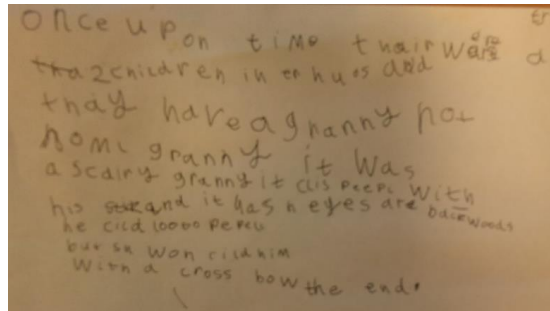 once upon time thair ware a
tha 2 children in en huos and
thay have a granny not
noml granny it was
a scairy granny it cils peepl with
his and it has n eyes are backwoods
he cild 10000 pepeu
but sn won cild him
with a cross bow the end.